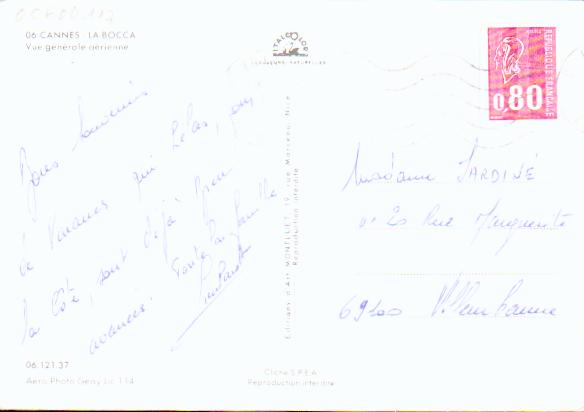 06 CANNES - LA BOCCA
Vue générale aérienne
ITALCOLOR
REPUBLIQUE FRANÇAISE
0,80
Bons souvenirs
de vacances qui
la Côte, sont déjà bien
avancés. Toute la famille
Madame JARDINÉ
n° 20 Rue Marguerite
69100 Villeurbanne
Editions d'Art MONTLUET, 19, rue Marceau, Nice
Reproduction interdite
06.121.37
Aéro Photo Geay Lic 114
Cliché S.P.E.A.
Reproduction interdite